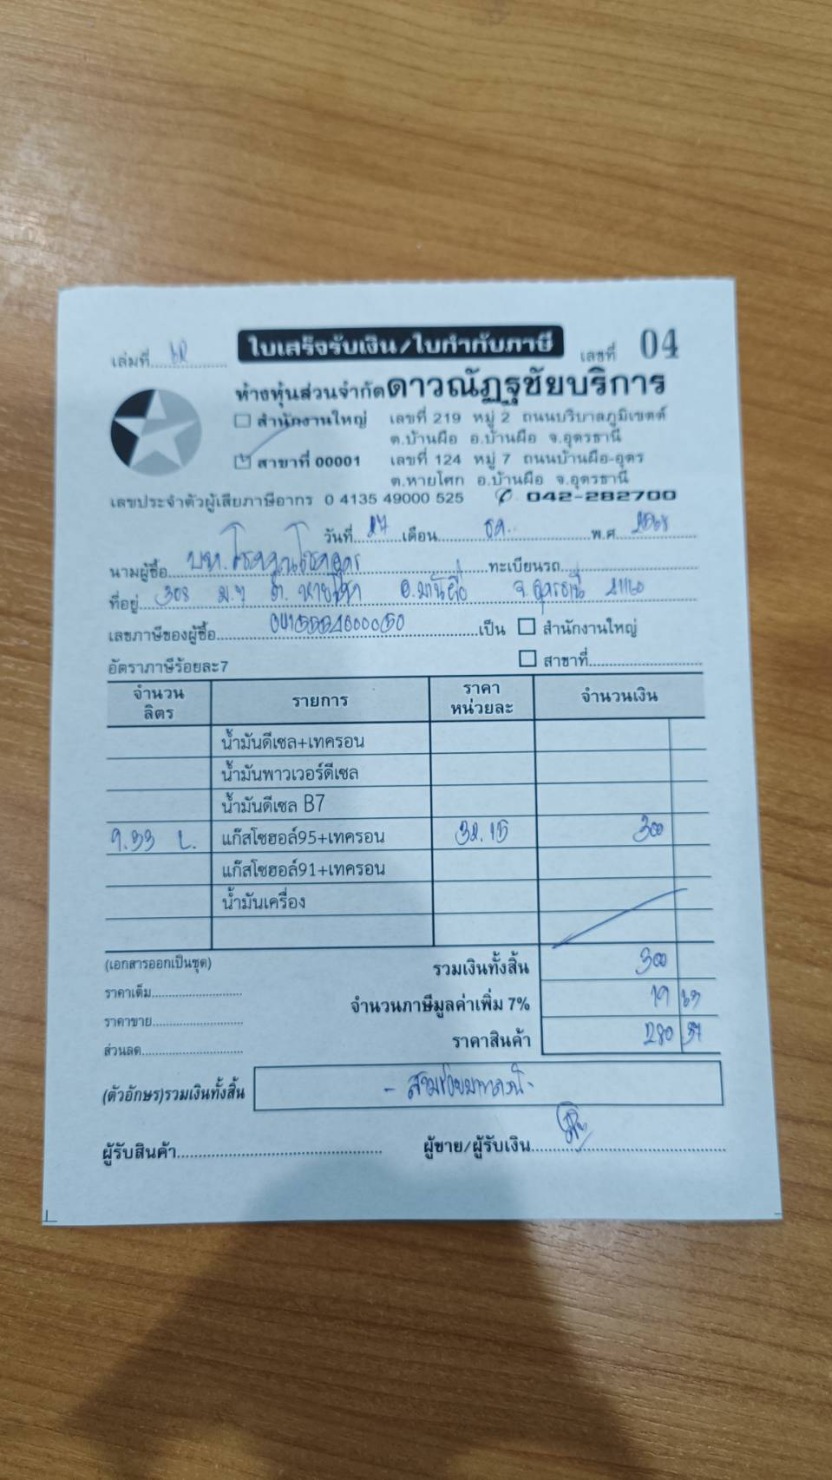 เล่มที่
ใบเสร็จรับเงิน/ใบกำกับภาษี
เลขที่ 04
ห้างหุ้นส่วนจำกัดดาวณัฏฐชัยบริการ
สำนักงานใหญ่ เลขที่ 219 หมู่ 2 ถนนบริบาลภูมิเขตต์
ต.บ้านผือ อ.บ้านผือ จ.อุดรธานี
สาขาที่ 00001 เลขที่ 124 หมู่ 7 ถนนบ้านผือ-อุดร
ต.หายโศก อ.บ้านผือ จ.อุดรธานี
เลขประจำตัวผู้เสียภาษีอากร 0 4135 49000 525 042-282700
วันที่ 27 เดือน พ.ศ. 2568
นามผู้ซื้อ ทะเบียนรถ
ที่อยู่ 308 ต. หายโศก อ.บ้านผือ จ.อุดรธานี 41160
เลขภาษีของผู้ซื้อ เป็น สำนักงานใหญ่
อัตราภาษีร้อยละ7 สาขาที่
จำนวน ลิตร รายการ ราคา หน่วยละ จำนวนเงิน
น้ำมันดีเซล+เทครอน
น้ำมันพาวเวอร์ดีเซล
น้ำมันดีเซล B7
9.33 L. แก๊สโซฮอล์95+เทครอน 32.15 300
แก๊สโซฮอล์91+เทครอน
น้ำมันเครื่อง
(เอกสารออกเป็นชุด) รวมเงินทั้งสิ้น 300
ราคาเต็ม จำนวนภาษีมูลค่าเพิ่ม 7% 19 63
ราคาขาย
ส่วนลด ราคาสินค้า 280 37
(ตัวอักษร)รวมเงินทั้งสิ้น - สามร้อยบาทถ้วน -
ผู้รับสินค้า ผู้ขาย/ผู้รับเงิน